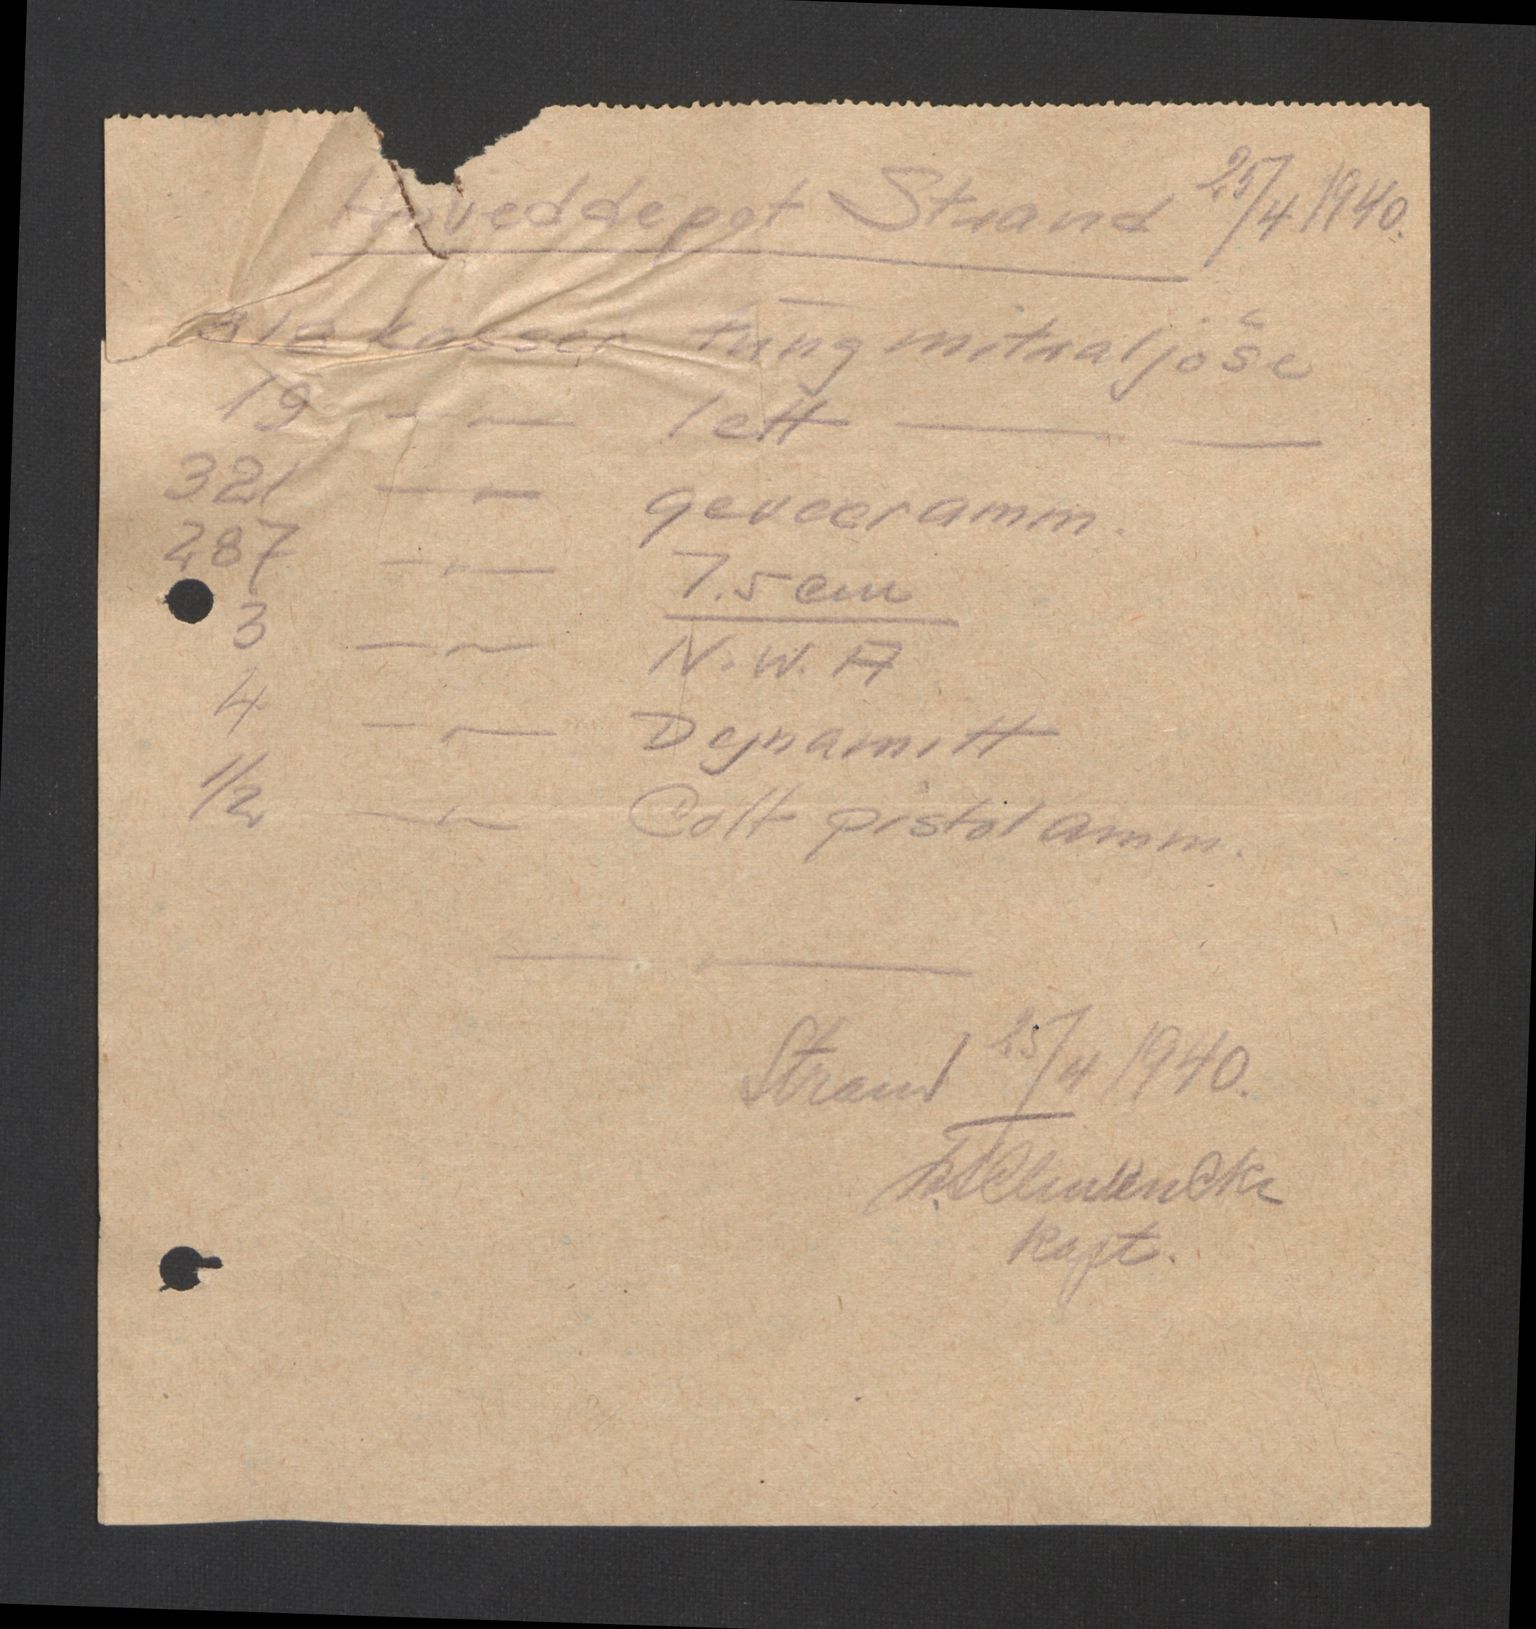 Hoveddepot Strand 25/4 1940.
kasser tung mitraljöse
19 — " — lett — " —
321 — " — geveeramm.
287 — " — 7.5 cm
3 — " — N. W. A
4 — " — Dynamitt
1/2 — " — Colt pistol amm.
Strand 25/4 1940.
Kapt.